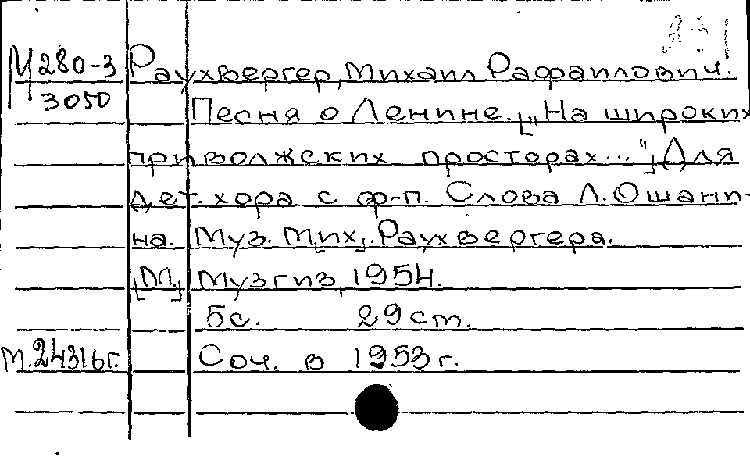 М 280-3 Раухвергер, Михаил Рафаилович.
3050 Песня о Ленине. ["На широких
приволжских просторах..."] Для
дет. хора с ф-п. Слова Л. Ошани-
на. Муз. М[их]. Раухвергера.
[М.] Музгиз, 1954.
5с. 29 ст.
М.24316г. Соч. в 1953 г.